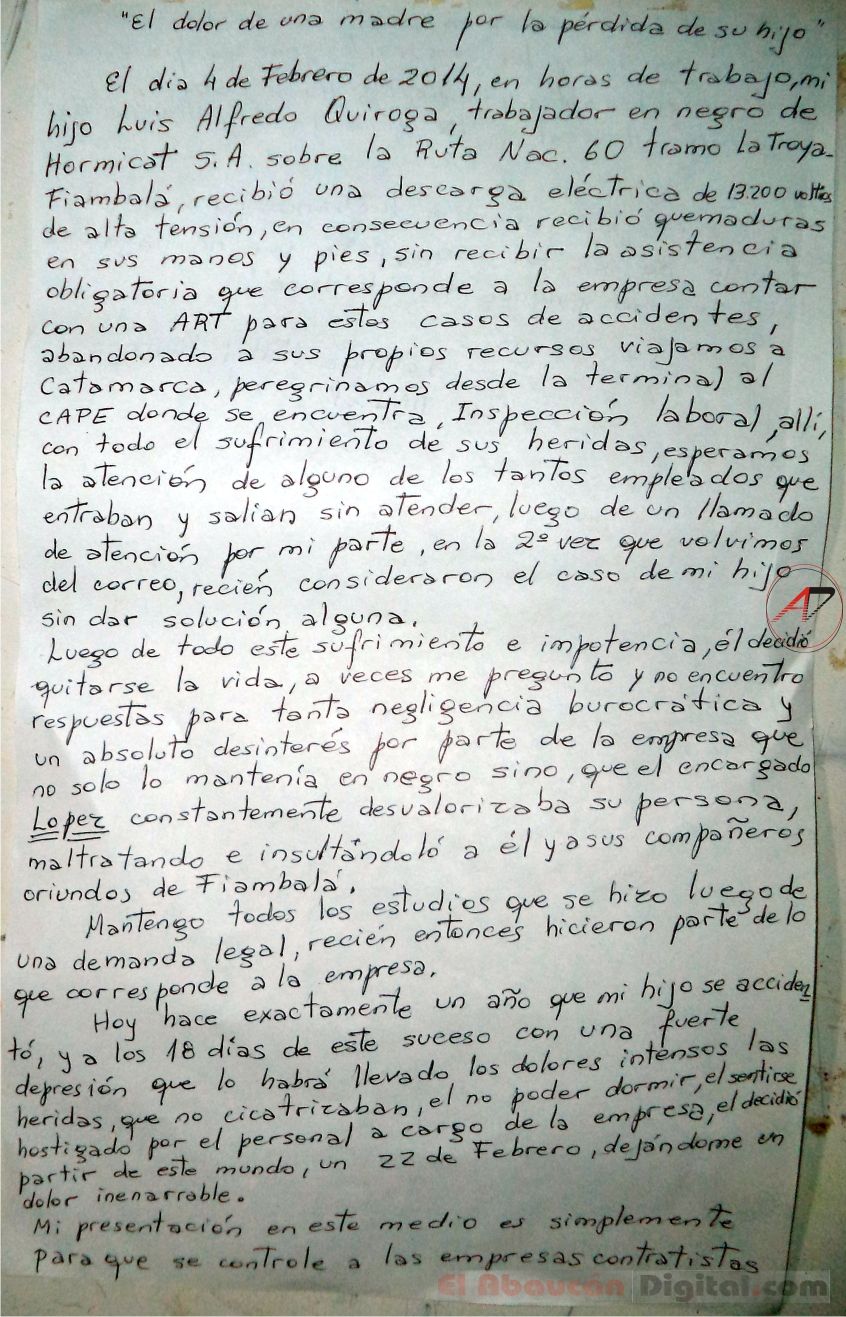 "El dolor de una madre por la pérdida de su hijo"
El dia 4 de Febrero de 2014, en horas de trabajo, mi
hijo Luis Alfredo Quiroga, trabajador en negro de
Hormicat S.A. sobre la Ruta Nac. 60 tramo La Troya-
Fiambalá, recibió una descarga eléctrica de 13.200 voltios
de alta tensión, en consecuencia recibió quemaduras
en sus manos y pies, sin recibir la asistencia
obligatoria que corresponde a la empresa contar
con una ART para estos casos de accidentes,
abandonado a sus propios recursos viajamos a
Catamarca, peregrinamos desde la terminal al
CAPE donde se encuentra, Inspección laboral, allí,
con todo el sufrimiento de sus heridas, esperamos
la atención de alguno de los tantos empleados que
entraban y salian sin atender, luego de un llamado
de atención por mi parte, en la 2º vez que volvimos
del correo, recién consideraron el caso de mi hijo
sin dar solución alguna.
Luego de todo este sufrimiento e impotencia, él decidió
quitarse la vida, a veces me pregunto y no encuentro
respuestas para tanta negligencia burocrática y
un absoluto desinterés por parte de la empresa que
no solo lo mantenía en negro sino, que el encargado
Lopez constantemente desvalorizaba su persona,
maltratando e insultándoló a él y a sus compañeros
oriundos de Fiambalá.
Mantengo todos los estudios que se hizo luego de
una demanda legal, recién entonces hicieron parte de lo
que corresponde a la empresa.
Hoy hace exactamente un año que mi hijo se acciden
tó, y a los 18 días de este suceso con una fuerte
depresión que lo habrá llevado los dolores intensos las
heridas, que no cicatrizaban, el no poder dormir, el sentirse
hostigado por el personal a cargo de la empresa, el decidió
partir de este mundo, un 22 de Febrero, dejándome un
dolor inenarrable.
Mi presentación en este medio es simplemente
para que se controle a las empresas contratistas
El Abaucán Digital.com